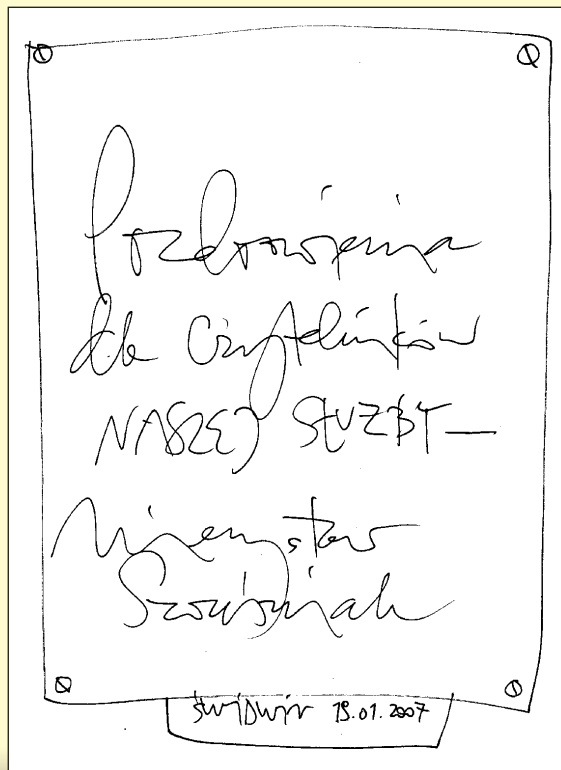 Pozdrowienia
dla Czytelników
NASZEJ SŁUŻBY —
Mirosław
ŚWIDWIN 19.01.2007